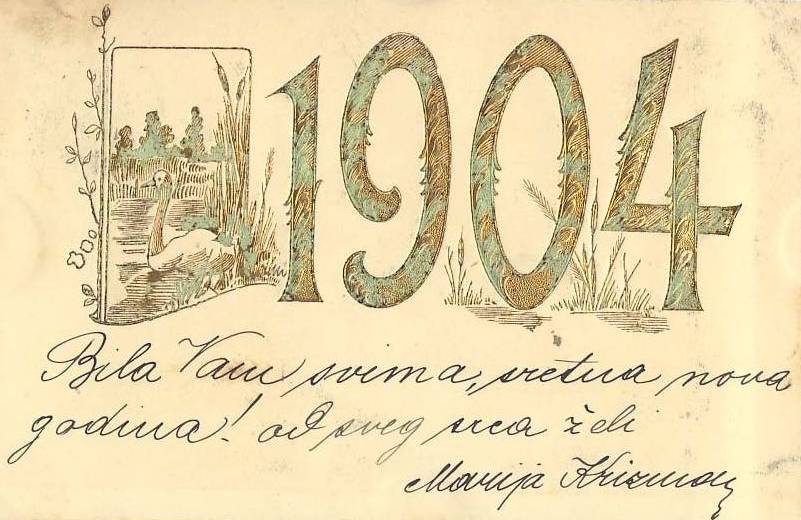 1904
Bila Vam svima, sretna nova
godina! od sveg srca želi
Marija